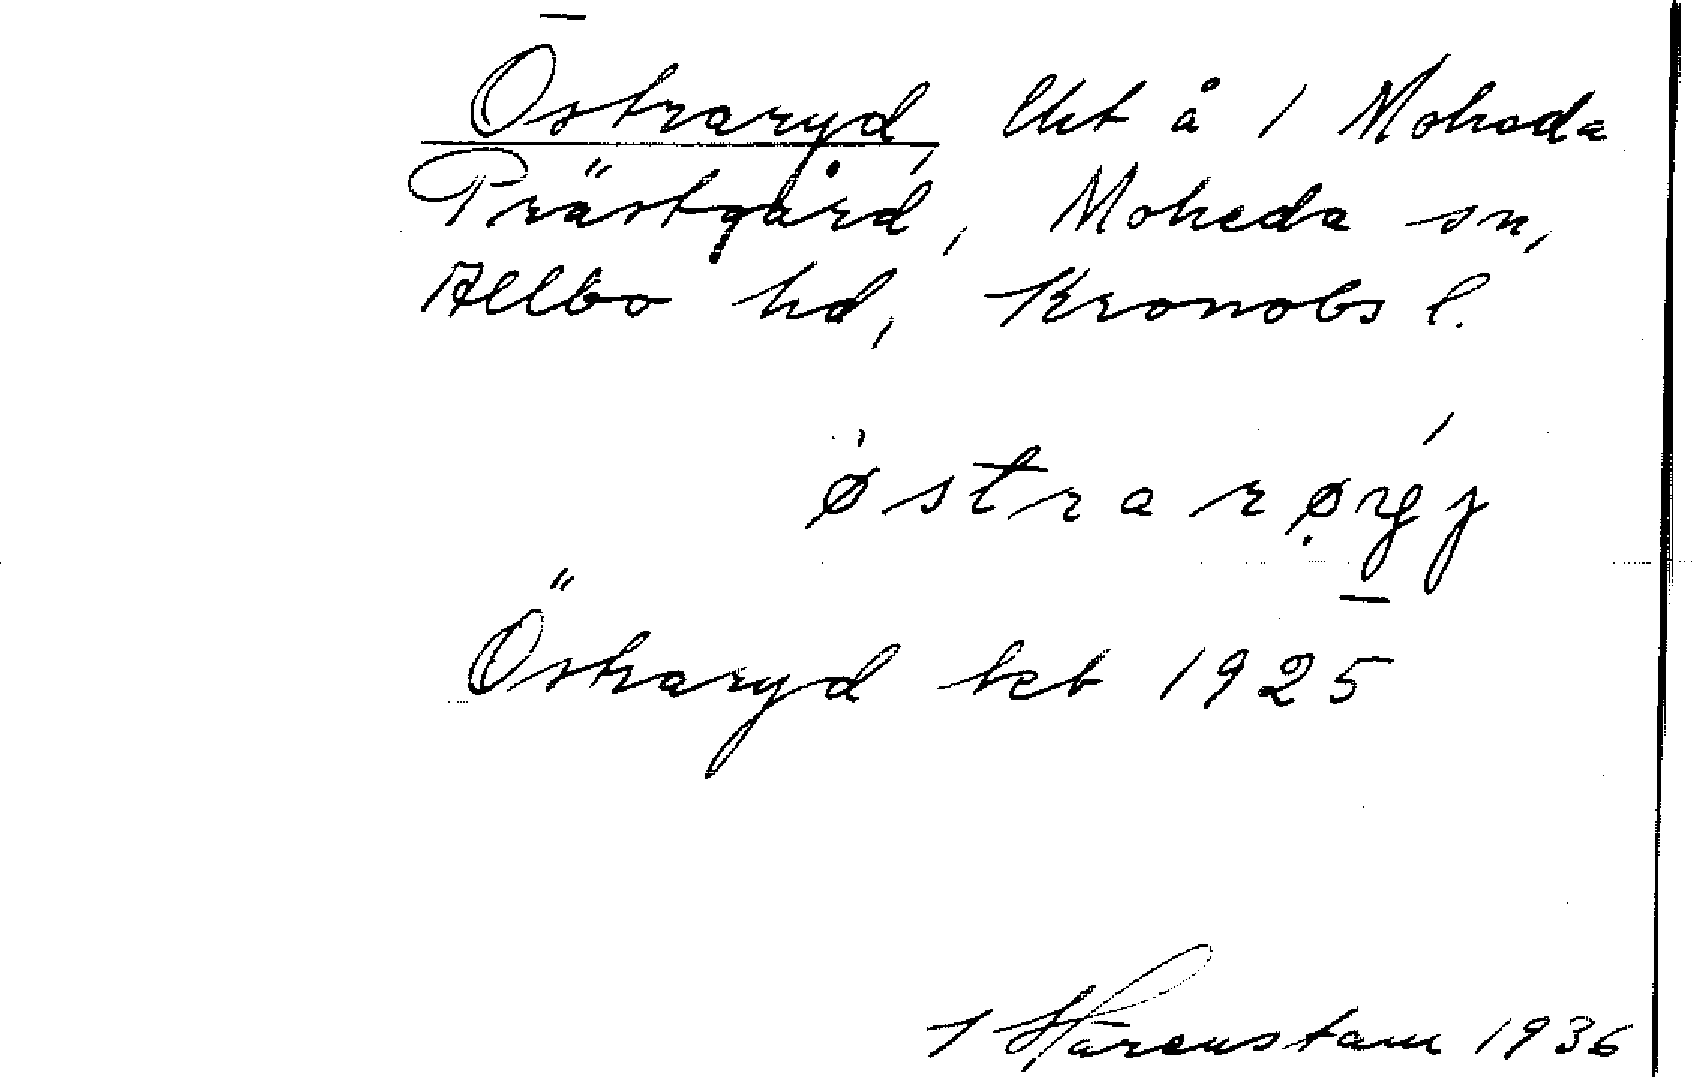 Östraryd, lht å 1 Moheda
Prästgård, Moheda sn,
Allbo hd, Kronobs l.
østrarø̣ry j
Östraryd kcb 1925
I Härenstam 1936